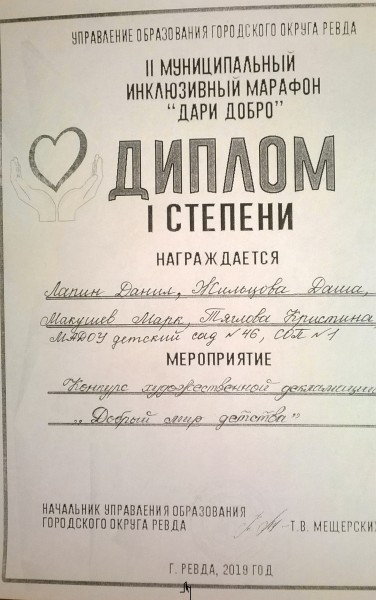 УПРАВЛЕНИЕ ОБРАЗОВАНИЯ ГОРОДСКОГО ОКРУГА РЕВДА
II МУНИЦИПАЛЬНЫЙ
ИНКЛЮЗИВНЫЙ МАРАФОН
“ДАРИ ДОБРО”
ДИПЛОМ
I СТЕПЕНИ
НАГРАЖДАЕТСЯ
Лапин Данил, Жильцова Даша,
Макушев Марк, Тяглова Кристина,
МАДОУ детский сад №46, СП №1
МЕРОПРИЯТИЕ
Конкурс художественной декламации
„Добрый мир детства”
НАЧАЛЬНИК УПРАВЛЕНИЯ ОБРАЗОВАНИЯ
ГОРОДСКОГО ОКРУГА РЕВДА
Т.В. МЕЩЕРСКИХ
Г. РЕВДА, 2019 ГОД